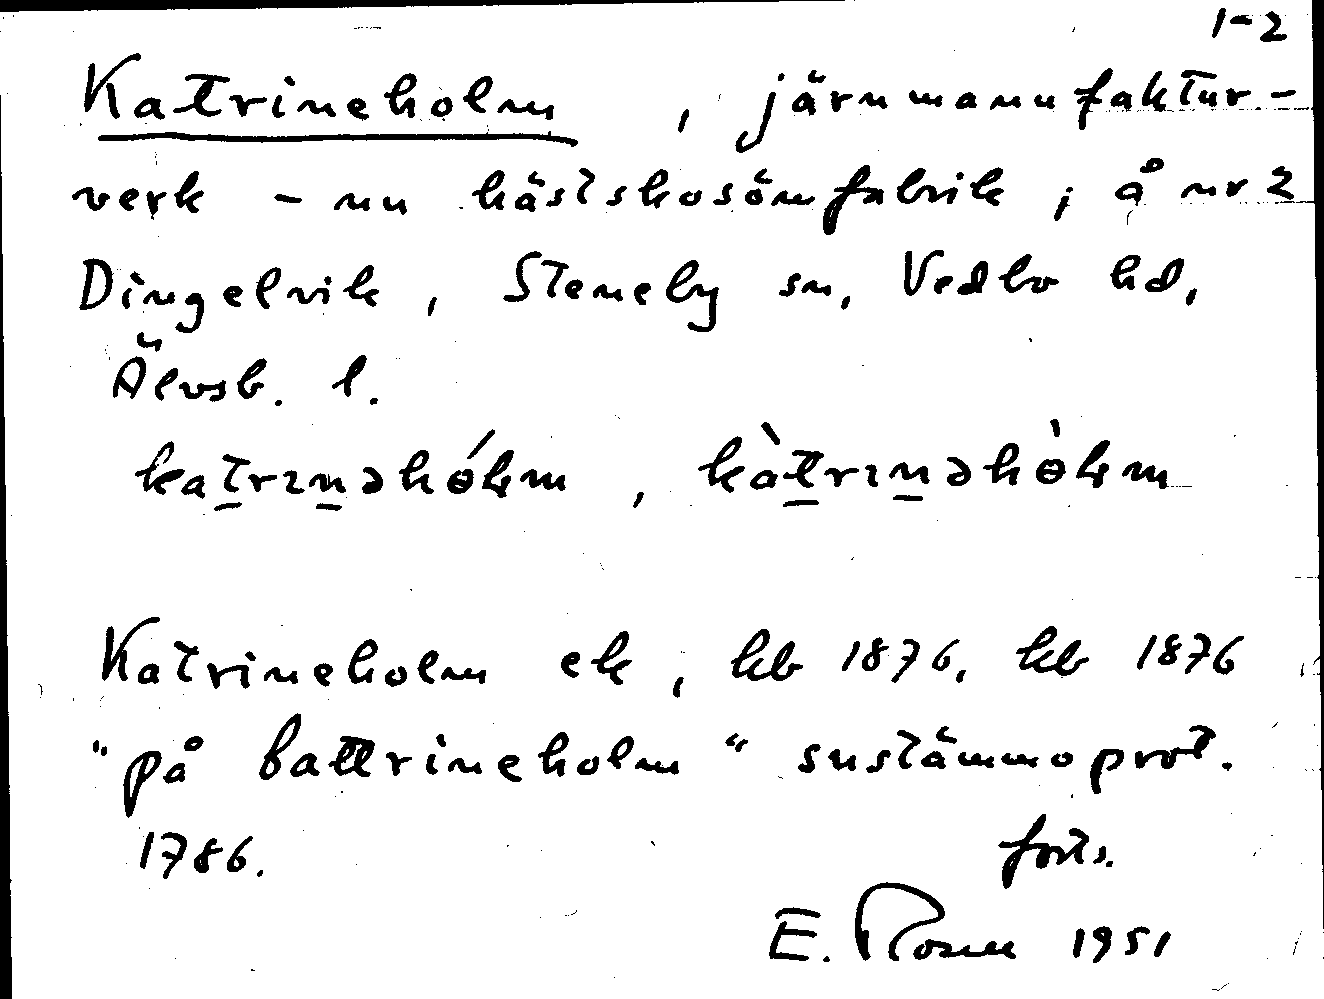 1-2
Katrineholm , järnmanufaktur-
verk - nu hästskosömfabrik ; å nr 2
Dingelvik , Steneby sn, Vedbo hd,
Älvsb. l.
katrɪnəhólm , kàtrɪnəhòlm
Katrineholm ek , hb 1876, kb 1876
"på Cattrineholm" snstämmoprot.
1786.
forts.
E. Rosm 1951